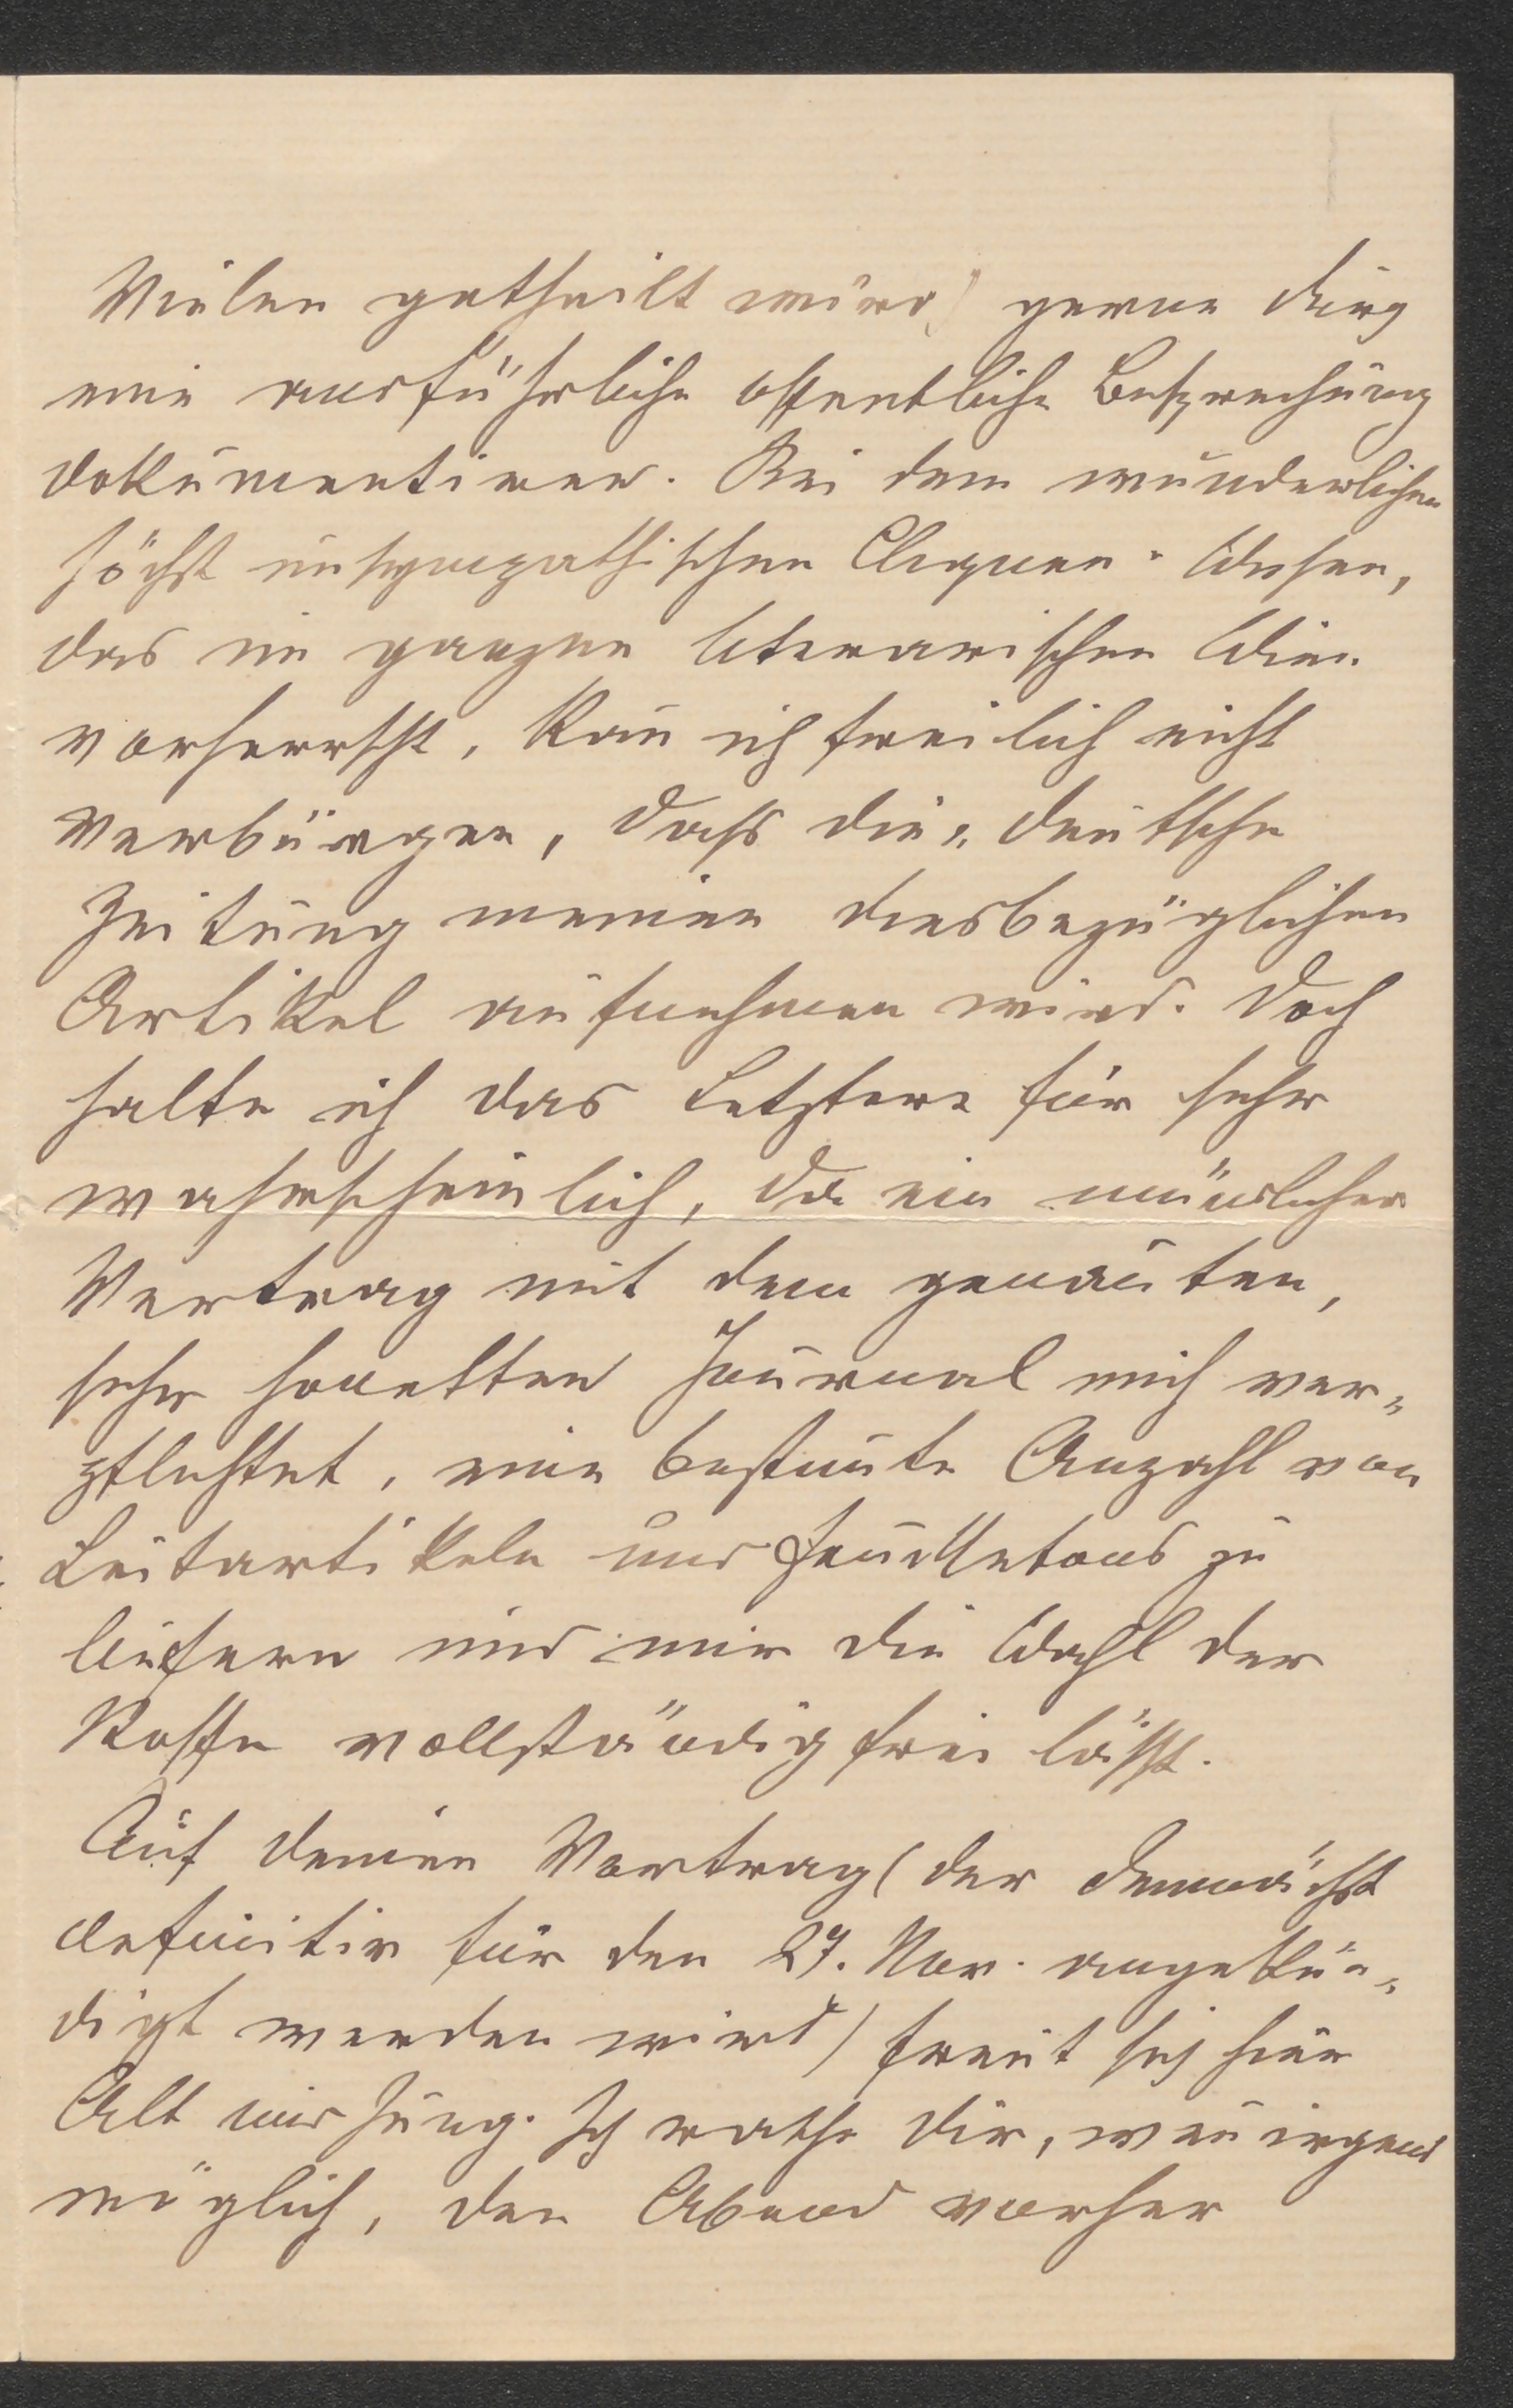 Vielen getheilt wird) gerne durch
eine ausführliche öffentliche Besprechung
dokumentiren. Bei dem wunderlichen
höchst unsympathischen Cliquen-Wesen,
das im ganzen literarischen Wien
vorherrscht, kan̄ ich freilich nicht
verbürgen, dass die „Deutsche
Zeitung meinen diesbezüglichen
Artikel aufnehmen wird. Doch
halte ich das Letztere für sehr
wahrscheinlich, da ein mündlicher
Vertrag mit dem genan̄ten,
sehr honetten Journal mich ver„
pflichtet, eine bestim̄te Anzahl von
Leitartikeln und Feuilletons zu
liefern und mir die Wahl der
Stoffe vollständig frei lässt.
Auf Deinen Vortrag (der demnächst
definitiv für den 27. Nov. angekün„
digt werden wird) freut sich hier
Alt und Jung. Ich rathe Dir, wen̄ irgend
möglich, den Abend vorher